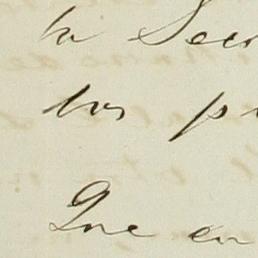 la Sec
los p
Que en